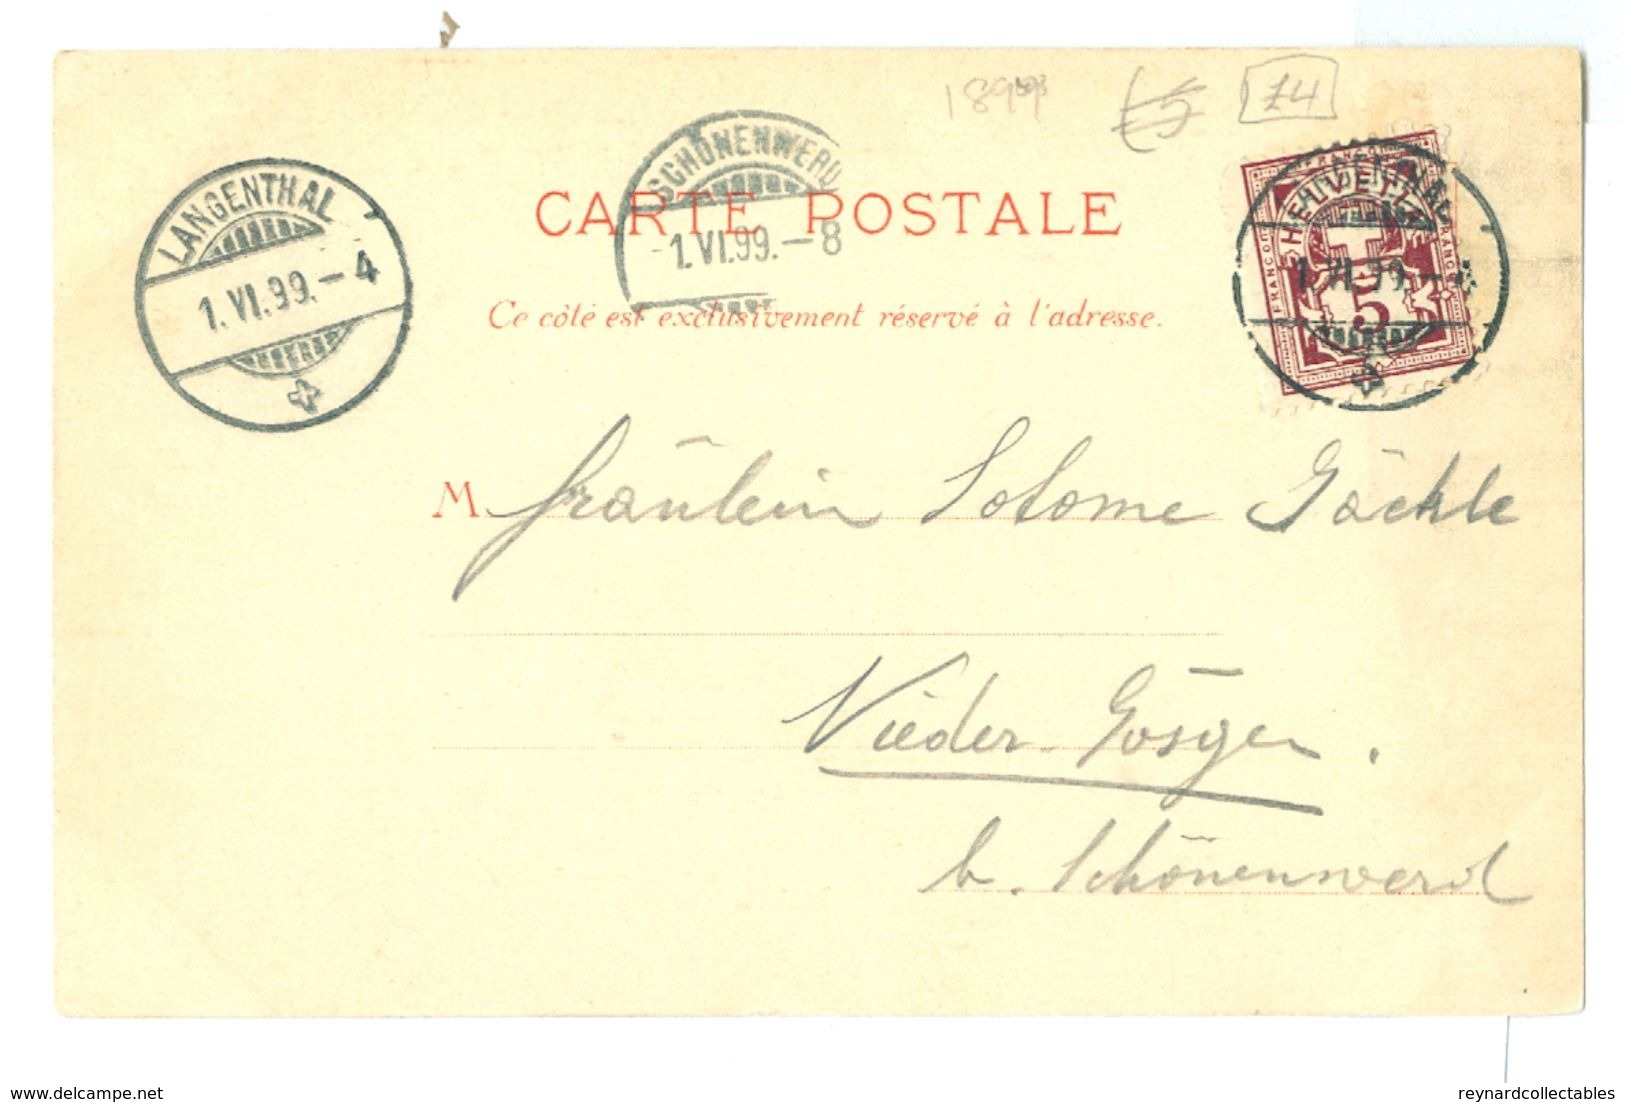 1899
£5
£4
LANGENTHAL
1.VI.99.-4
SCHÖNENWERD
-1.VI.99.-8
LANGENTHAL
1.VI.99.-4
FRANCO
HELVETIA
FRANCO
FRANCO
5
CARTE POSTALE
Ce côté est exclusivement réservé à l'adresse.
M Fräulein Salome Gächle
Nieder-Gösgen.
b. Schönenwerd
delcampe.net
reynardcollectables